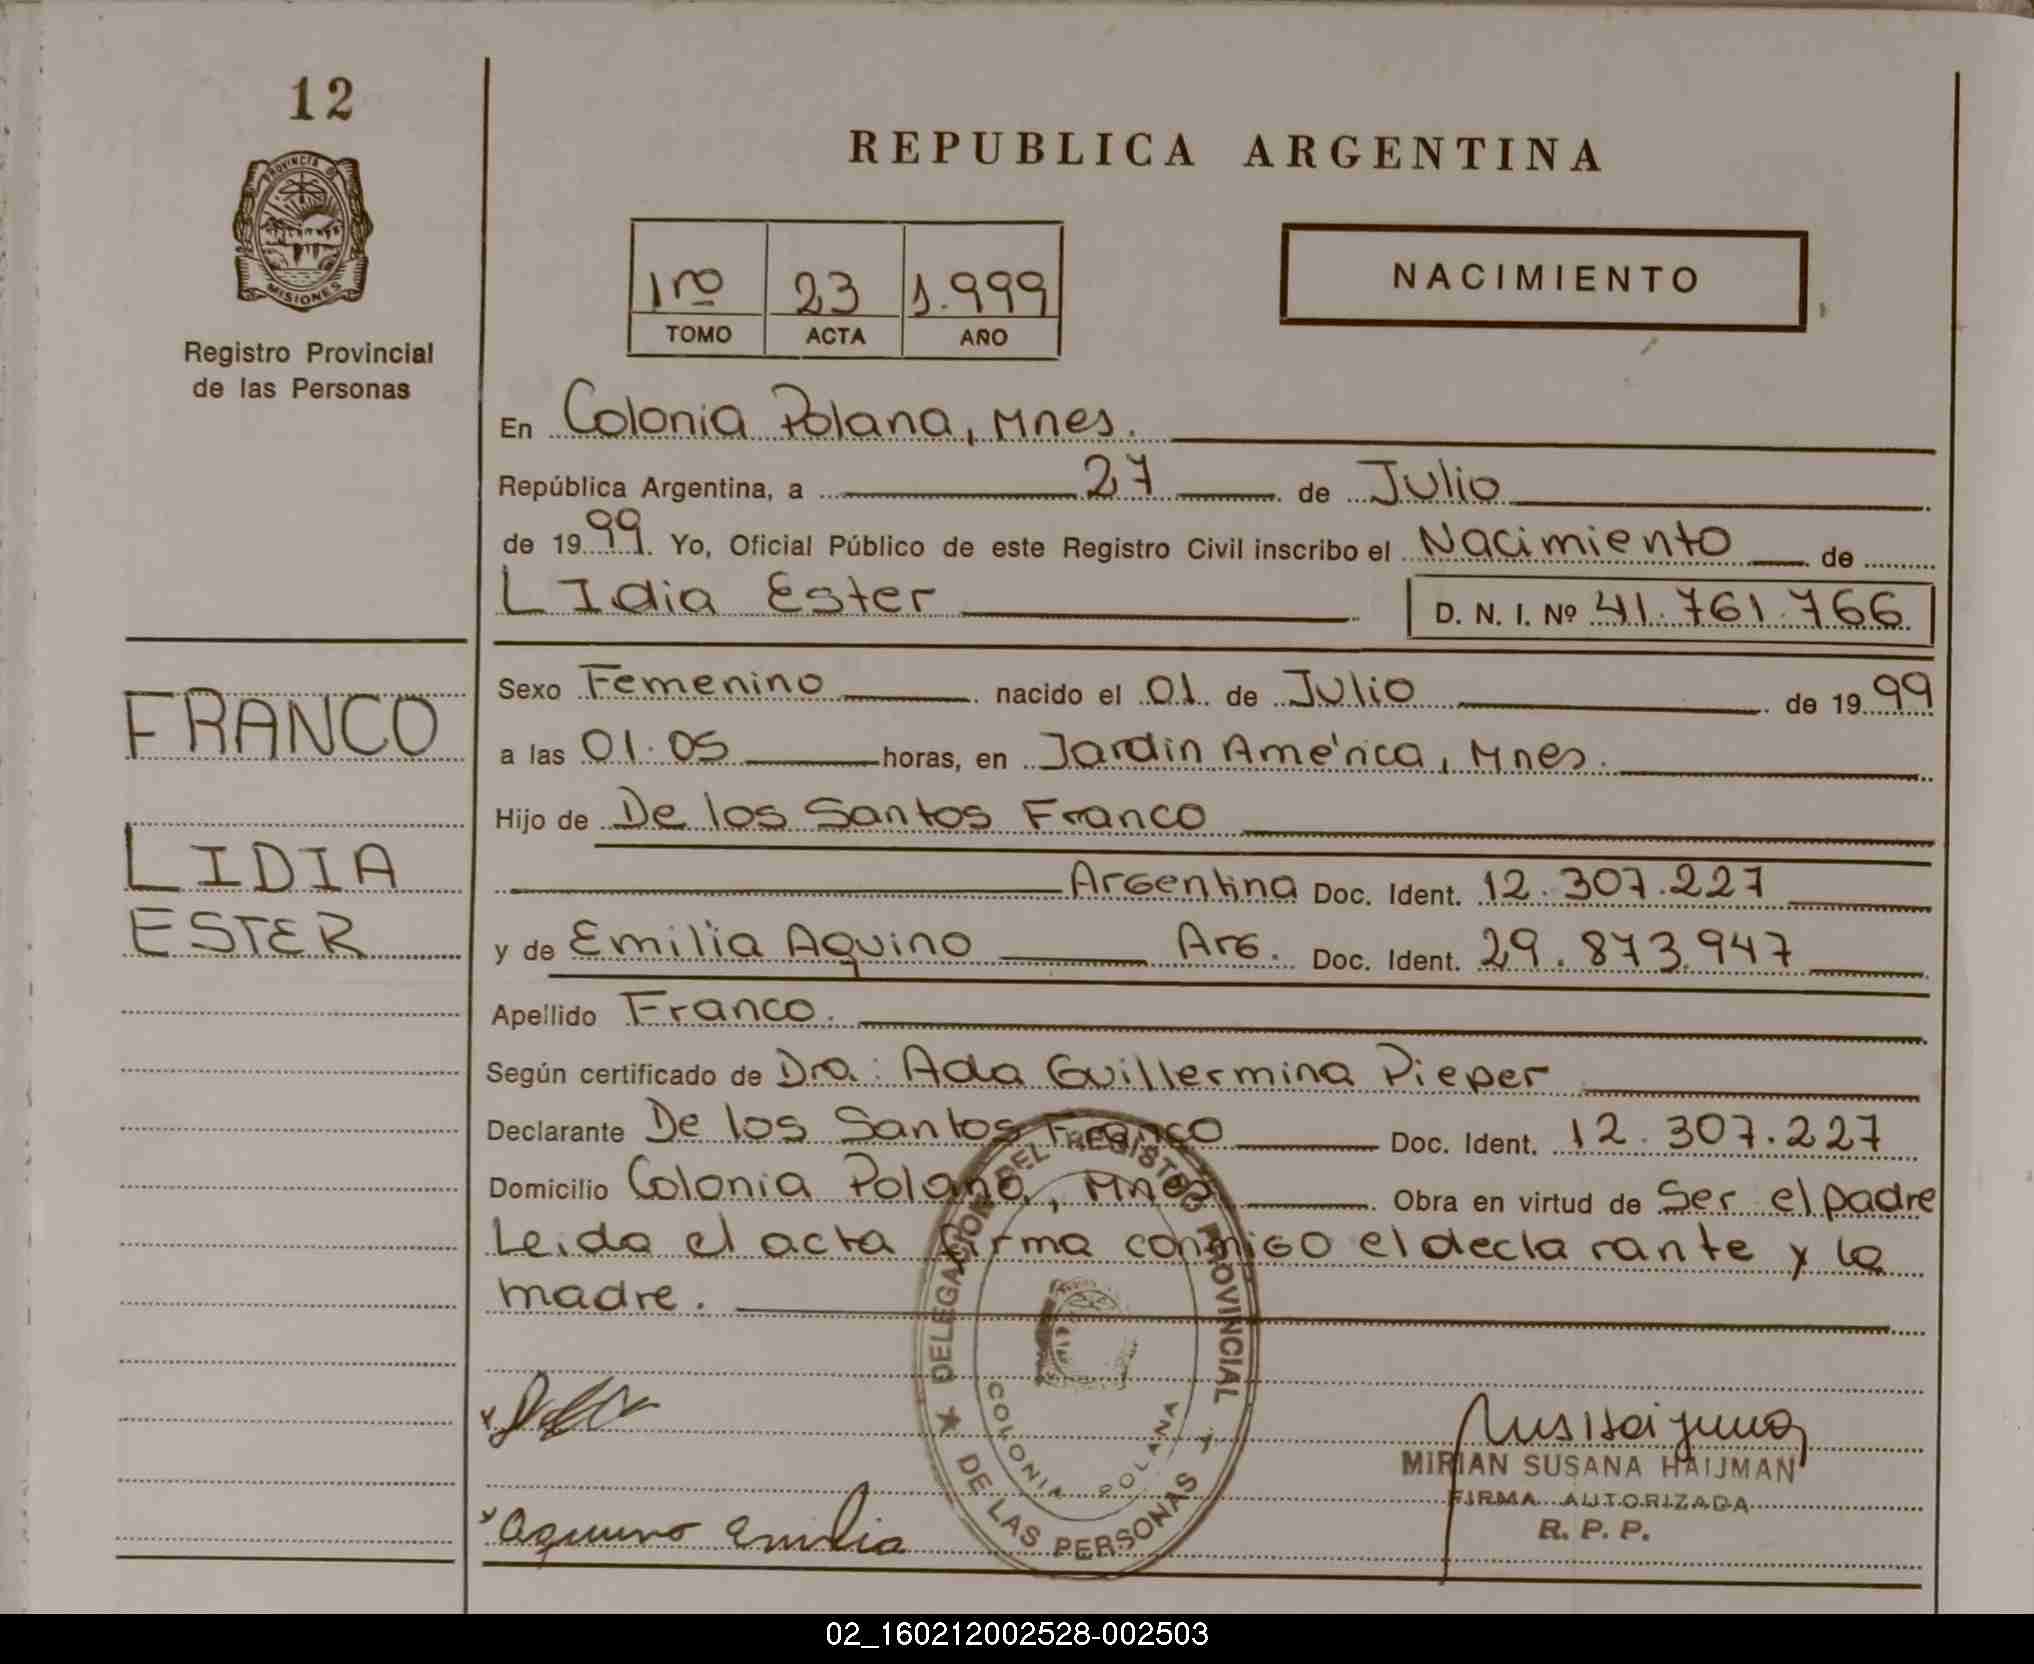 12
PROVINCIA DE
MISIONES
Registro Provincial
de las Personas
REPUBLICA ARGENTINA
1ro 23 1.999
TOMO ACTA AÑO
NACIMIENTO
En Colonia Polana, Mnes.
República Argentina, a 27 de Julio
de 1999. Yo, Oficial Público de este Registro Civil inscribo el Nacimiento de
LIdia Ester D. N. I. Nº 41.761.766
FRANCO
LIDIA
ESTER
Sexo Femenino nacido el 01 de Julio de 1999
a las 01.05 horas, en Jardin América, Mnes.
Hijo de De los Santos Franco
Argentina Doc. Ident. 12.307.227
y de Emilia Aquino Arg. Doc. Ident. 29.873.947
Apellido Franco.
Según certificado de Dra: Ada Guillermina Pieper
Declarante De los Santos Franco Doc. Ident. 12.307.227
Domicilio Colonia Polana, Mnes Obra en virtud de Ser el padre
Leida el acta firma conmigo el declarante y la
madre.
DELEGACION DEL REGISTRO PROVINCIAL
DE LAS PERSONAS
COLONIA POLANA
Aquino Emilia
MIRIAN SUSANA HAIJMAN
FIRMA AUTORIZADA
R. P. P.
02_160212002528-002503